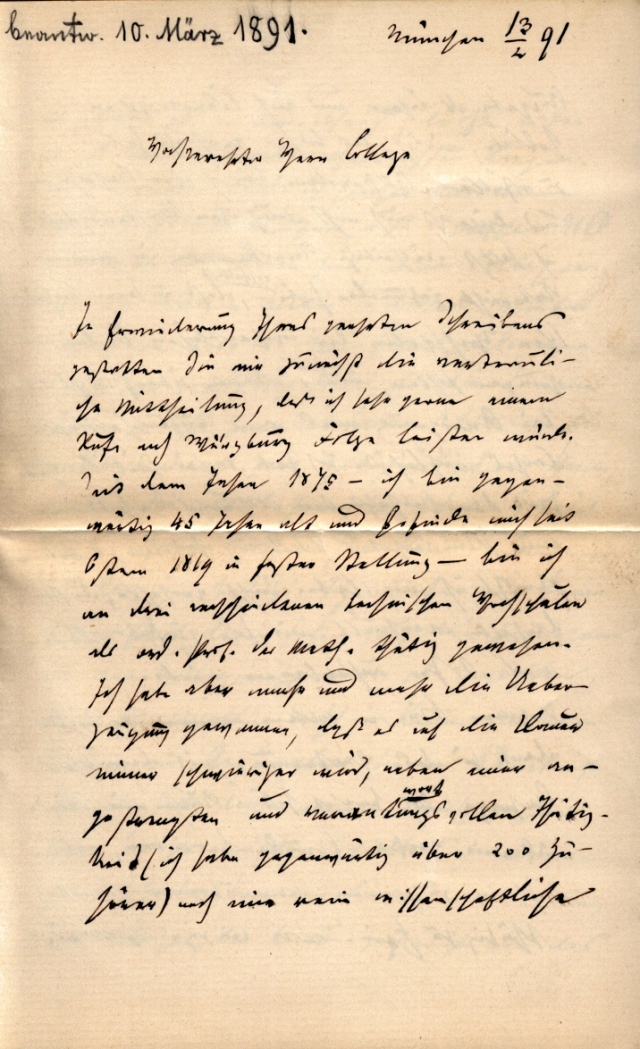 beantw. 10. März 1891.
München 13/2 91
Hochverehrter Herr College
In Erwiederung Ihres geehrten Schreibens
gestatten Sie mir zunächst die vertrauli-
che Mittheilung, daß ich sehr gerne einem
Rufe nach Würzburg Folge leisten würde.
Seit dem Jahre 1875 – ich bin gegen-
wärtig 45 Jahre alt und befinde mich seit
Ostern 1869 in fester Stellung – bin ich
an drei verschiedenen technischen Hochschulen
als ord. Prof. der Math. thätig gewesen.
Ich habe aber mehr und mehr die Ueber-
zeugung gewonnen, daß es auf die Dauer
immer schwieriger wird, neben einer an-
gestrengten und verantwortungsvollen Thätig-
keit (ich habe gegenwärtig über 200 Zu-
hörer) noch eine rein wissenschaftliche